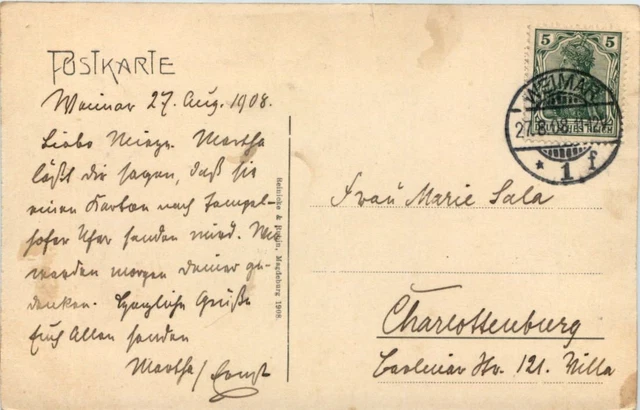 POSTKARTE
Weimar 27. Aug. 1908.
Liebe Miezn. Martha
läßt dir sagen, daß sie
einen Karton nach Tempel-
hofer Ufer senden wird. Wir
werden morgen Deiner ge-
denken. Herzliche Grüße
Euch Allen senden
Martha / Ernst
Reinicke & Rubin, Magdeburg 1908.
5 5
WEIMAR
27.8.08. 11-12V.
* 1 f
Frau Marie Sala
Charlottenburg
Berliner Str. 121. Villa